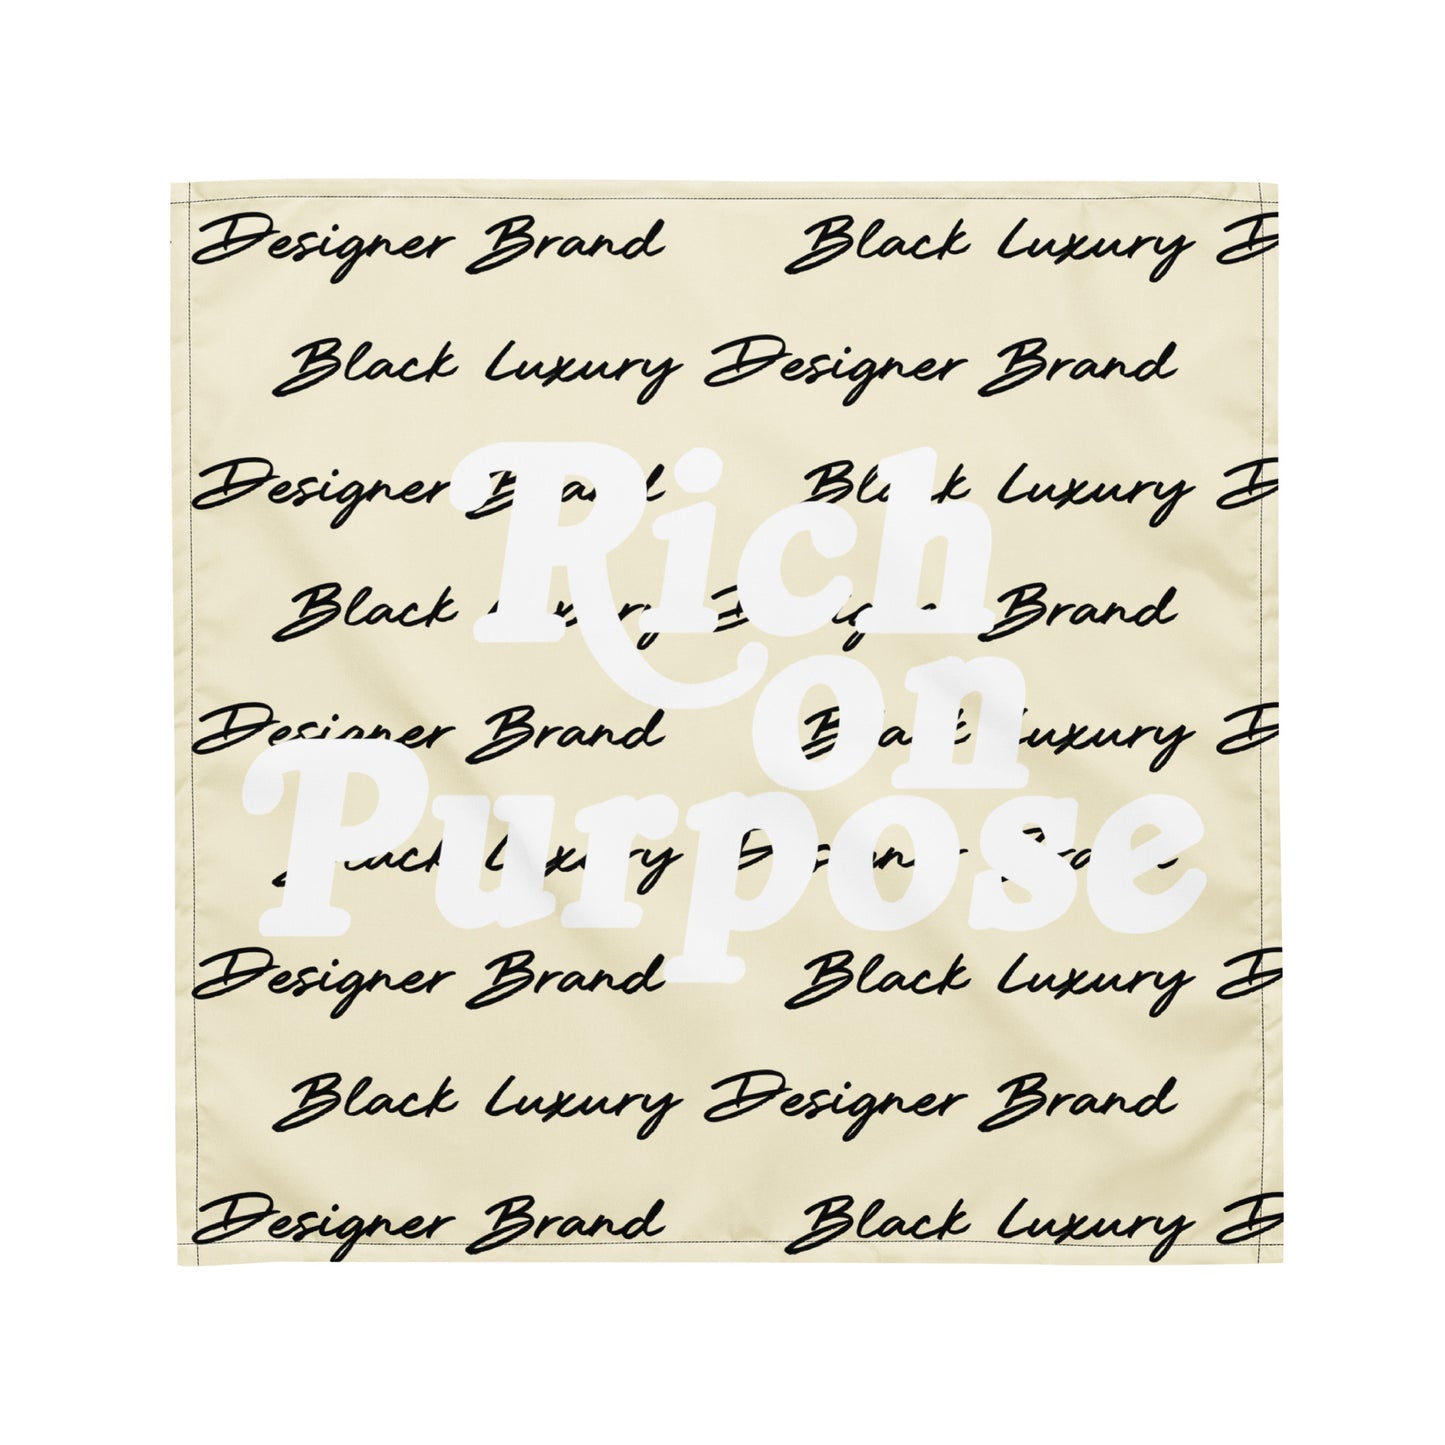 Designer Brand Black Luxury D
Black Luxury Designer Brand
Designer Brand Black Luxury D
Rich
Black Luxury Designer Brand
on
Designer Brand Black Luxury D
Purpose
Black Luxury Designer Brand
Designer Brand Black Luxury D
Black Luxury Designer Brand
Designer Brand Black Luxury D